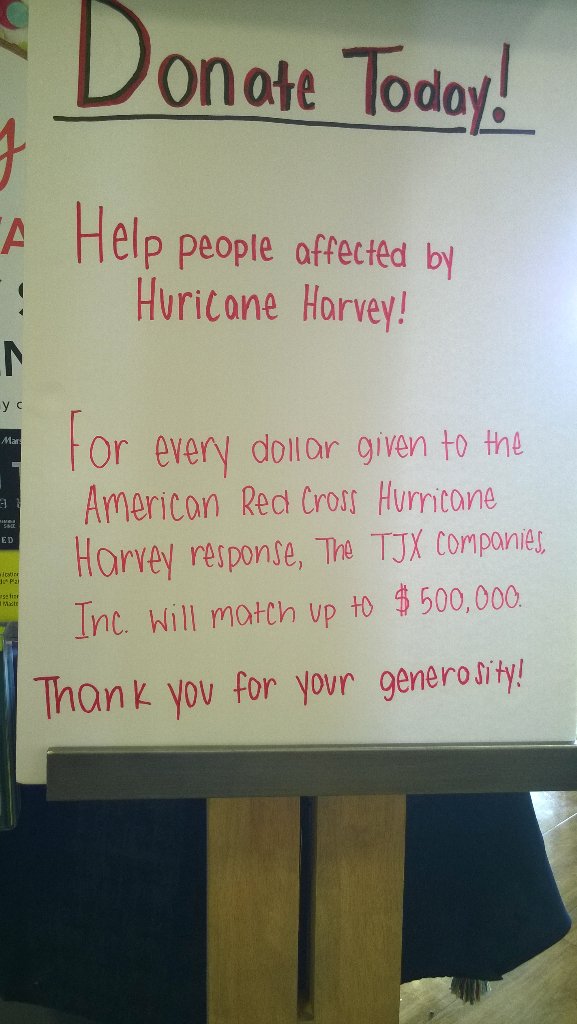 Donate Today!
Help people affected by
Huricane Harvey!
For every dollar given to the
American Red Cross Hurricane
Harvey response, The TJX Companies,
Inc. will match up to $500,000.
Thank you for your generosity!